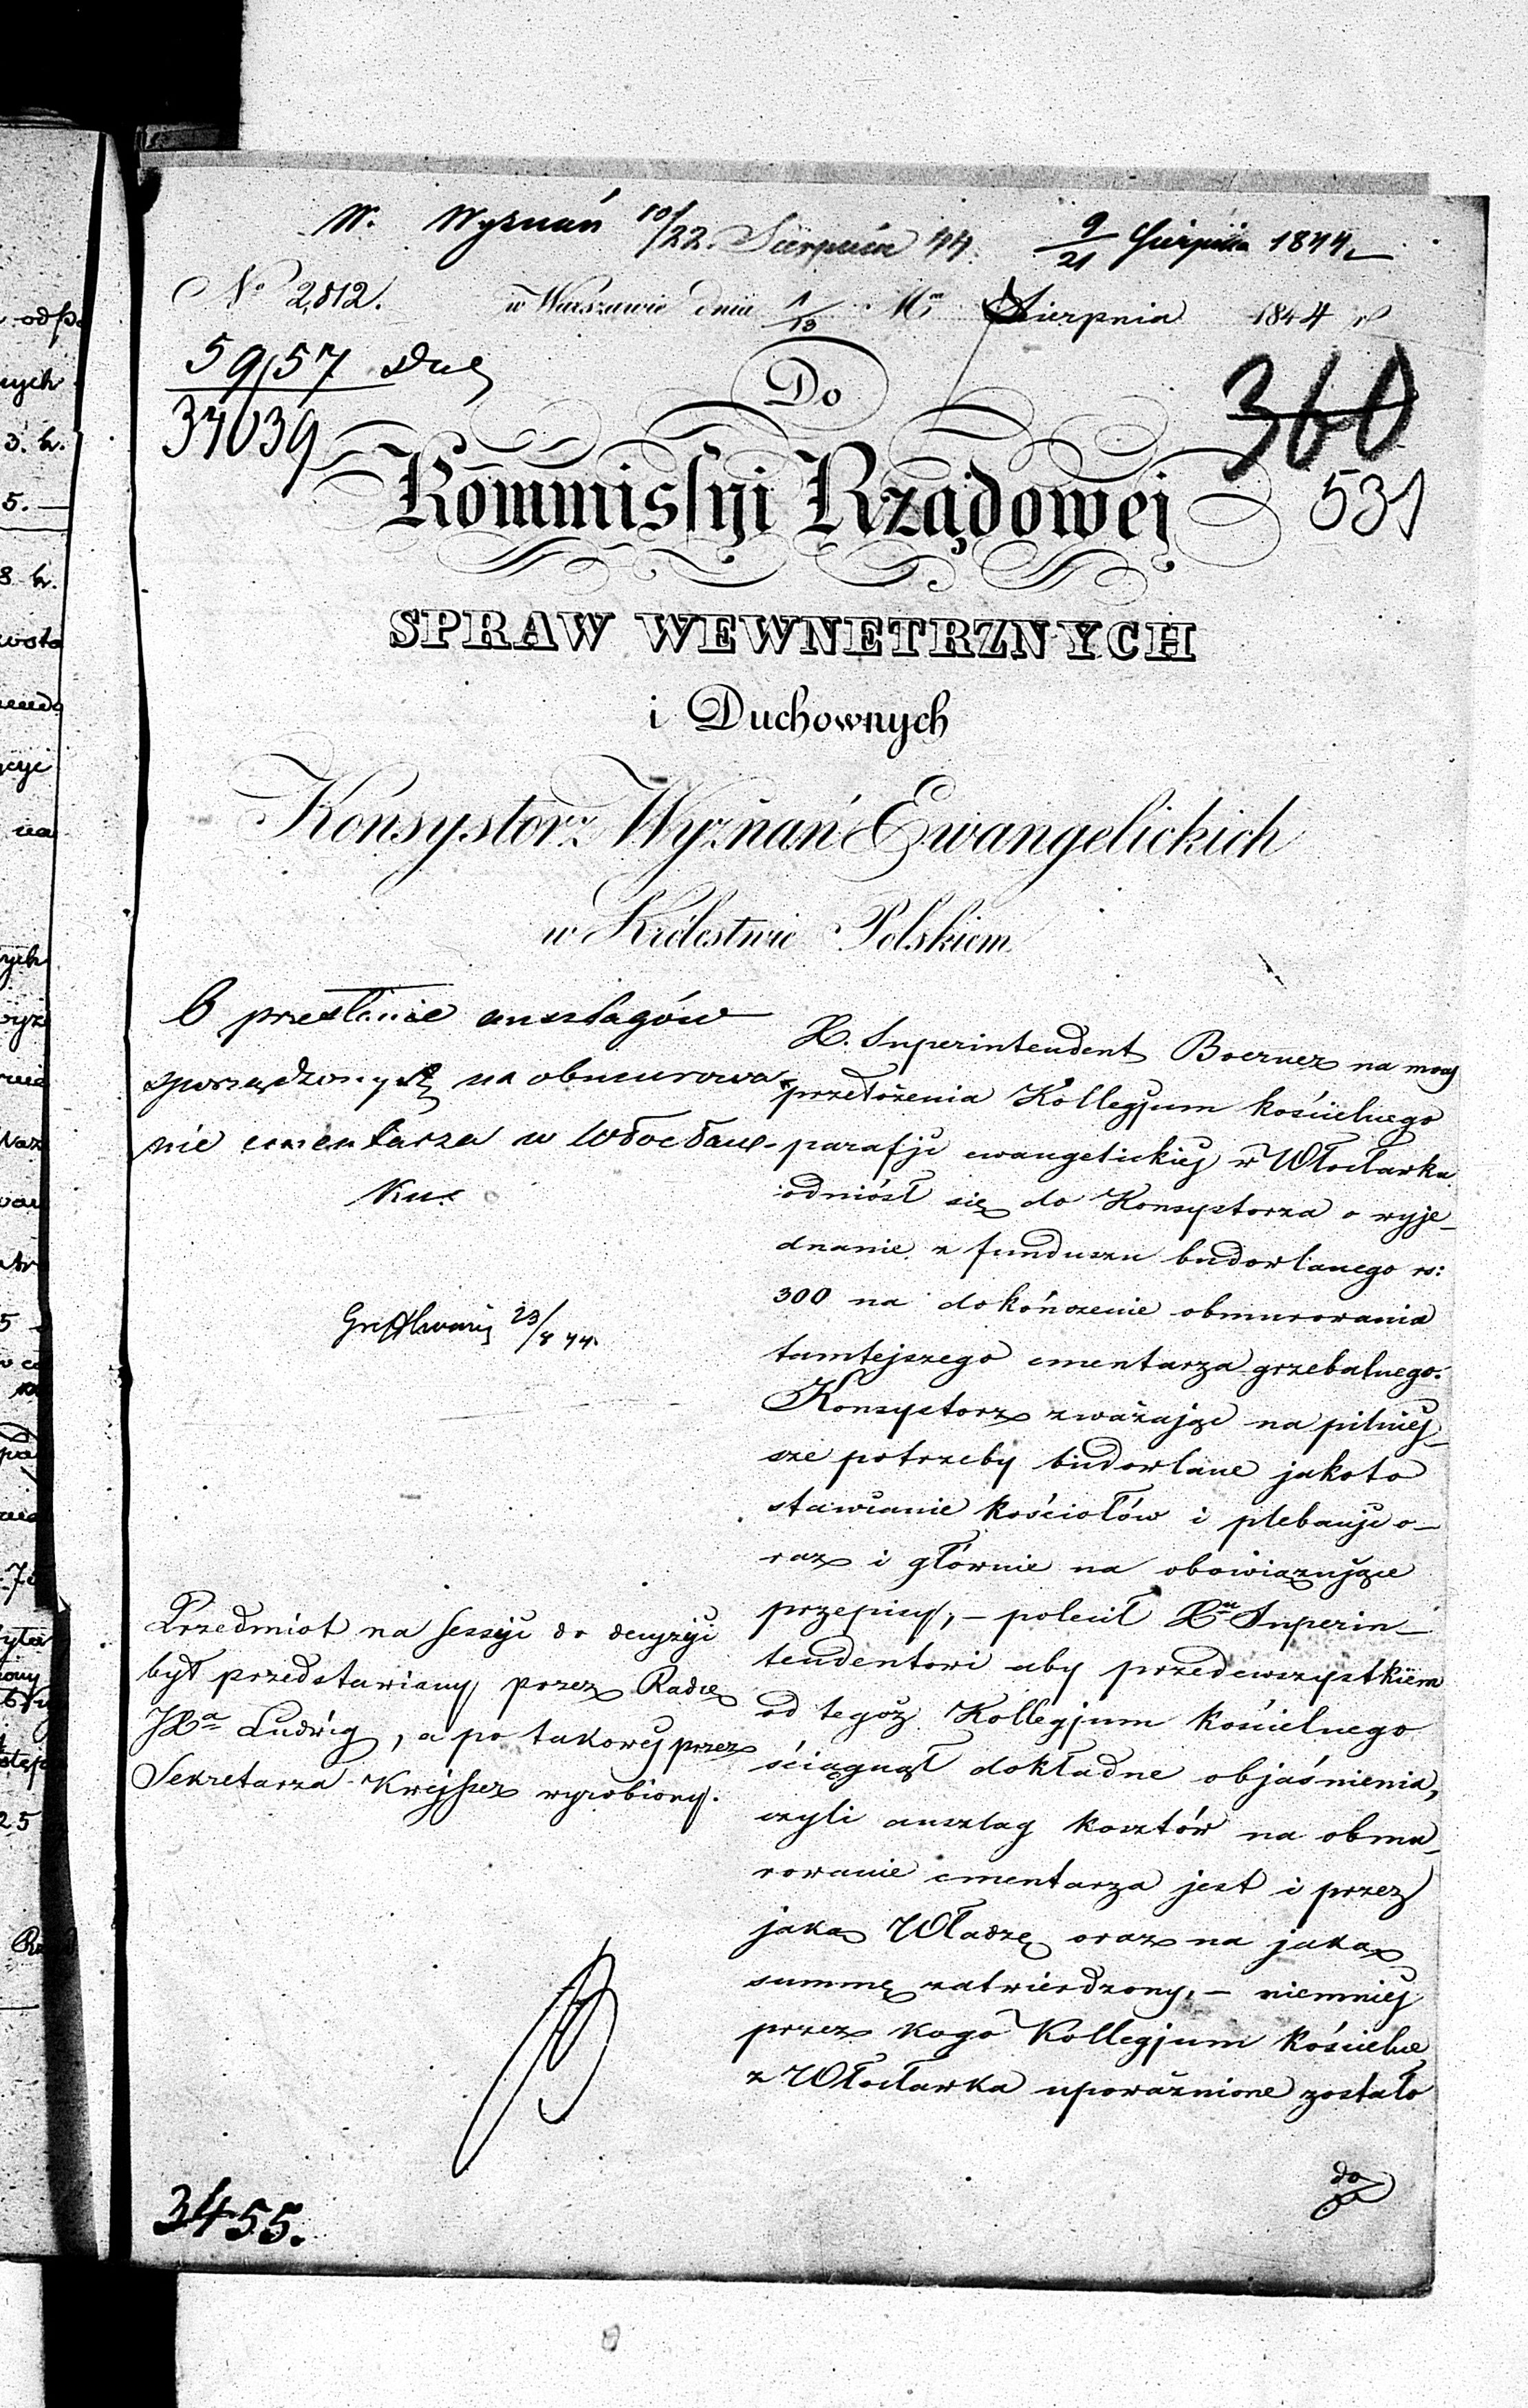 W. Wyznań 10/22. Sierpnia 44. 9/21 Sierpnia 1844
No 2,812. w Warszawie dnia 1/13 Mca Sierpnia 1844 r
5957
37039
360
531
Do
Kommissyi Rządowej
SPRAW WEWNETRZNYCH
i Duchownych
Konsystorz Wyznań Ewangelickich
w Królestwie Polskiem
O przesłanie anszlagów
sporządzonych na obmurowa-
nie cmentarza w Włocław-
ku.
23/8 44.
Przedmiot na sessyi do decyzyi
był przedstawiany przez Radcę
JXa Ludwig, a po takowej przez
Sekretarza Krejsser wyrobiony.
3455.
X. Superintendent Boerner na mocy
przełożenia Kollegjum kościelnego
parafji ewangelickiej w Włocławku
odniósł się do Konsystorza o wyje-
dnanie z funduszu budowlanego rs:
300 na dokończenie obmurowania
tamtejszego cmentarza grzebalnego.
Konsystorz zważając na pilniej-
sze potrzeby budowlane jakoto
stawianie kościołów i plebanji o-
raz i głównie na obowiązujące
przepisy, – polecił Xu Superin-
tendentowi aby przedewszystkiem
od tegoż Kollegjum kościelnego
ściągnął dokładne objaśnienia,
czyli anszlag kosztów na obmu-
rowanie cmentarza jest i przez
jaką Władzę oraz na jaką
summę zatwierdzony, – niemniej
przez kogo Kollegjum kościelne
z Włocławka upoważnione zostało
do